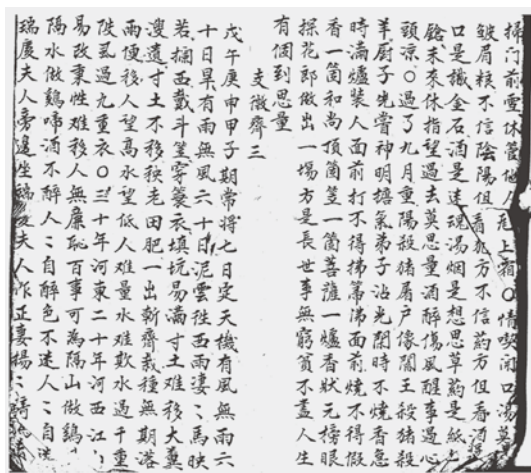 掃門前雪休管他人瓦上霜〇情閉口湯莫
皱眉核不信陰陽但看方不信葯方但看酒
口是讖金石酒是迷魂湯烟是想思草葯是紙
鎗未來休指望過去莫思量酒醉傷風醒事過心
頭凉〇過了九月重陽殺猪屠户像閻王殺猪殺
羊厨子先嘗神明揞氣弟子沾光閑時不燒香急
時滿爐裝人面前打不得拂箒佛面前燒不得假
香一箇和尚頂箇笠一箇菩薩一爐香狀元榜眼
探花郎做出一塲方是長世事無窮貧不盡人生
有個到思量
支微齊三
戊午庚申甲子期常将七日定天機有風無雨六
十日旱有雨無風六十日泥雲徃西雨凄〻馬暎
若擱西戴斗笠穿簑衣填坑易滿寸土难移大糞
溲遺寸土不移秧老田肥一出新齋栽種無期落
雨便移人望高水望低人难量水难欺水過千重
陡虱過九重衣〇三十年河東二十年河西江〻
易改秉性难移人無廉恥百事可為隔山做鷄
隔水做鷄啼酒不醉人〻自醉色不迷人〻自迷
瑞夫人旁邊坐夫人作正妻楊〻清